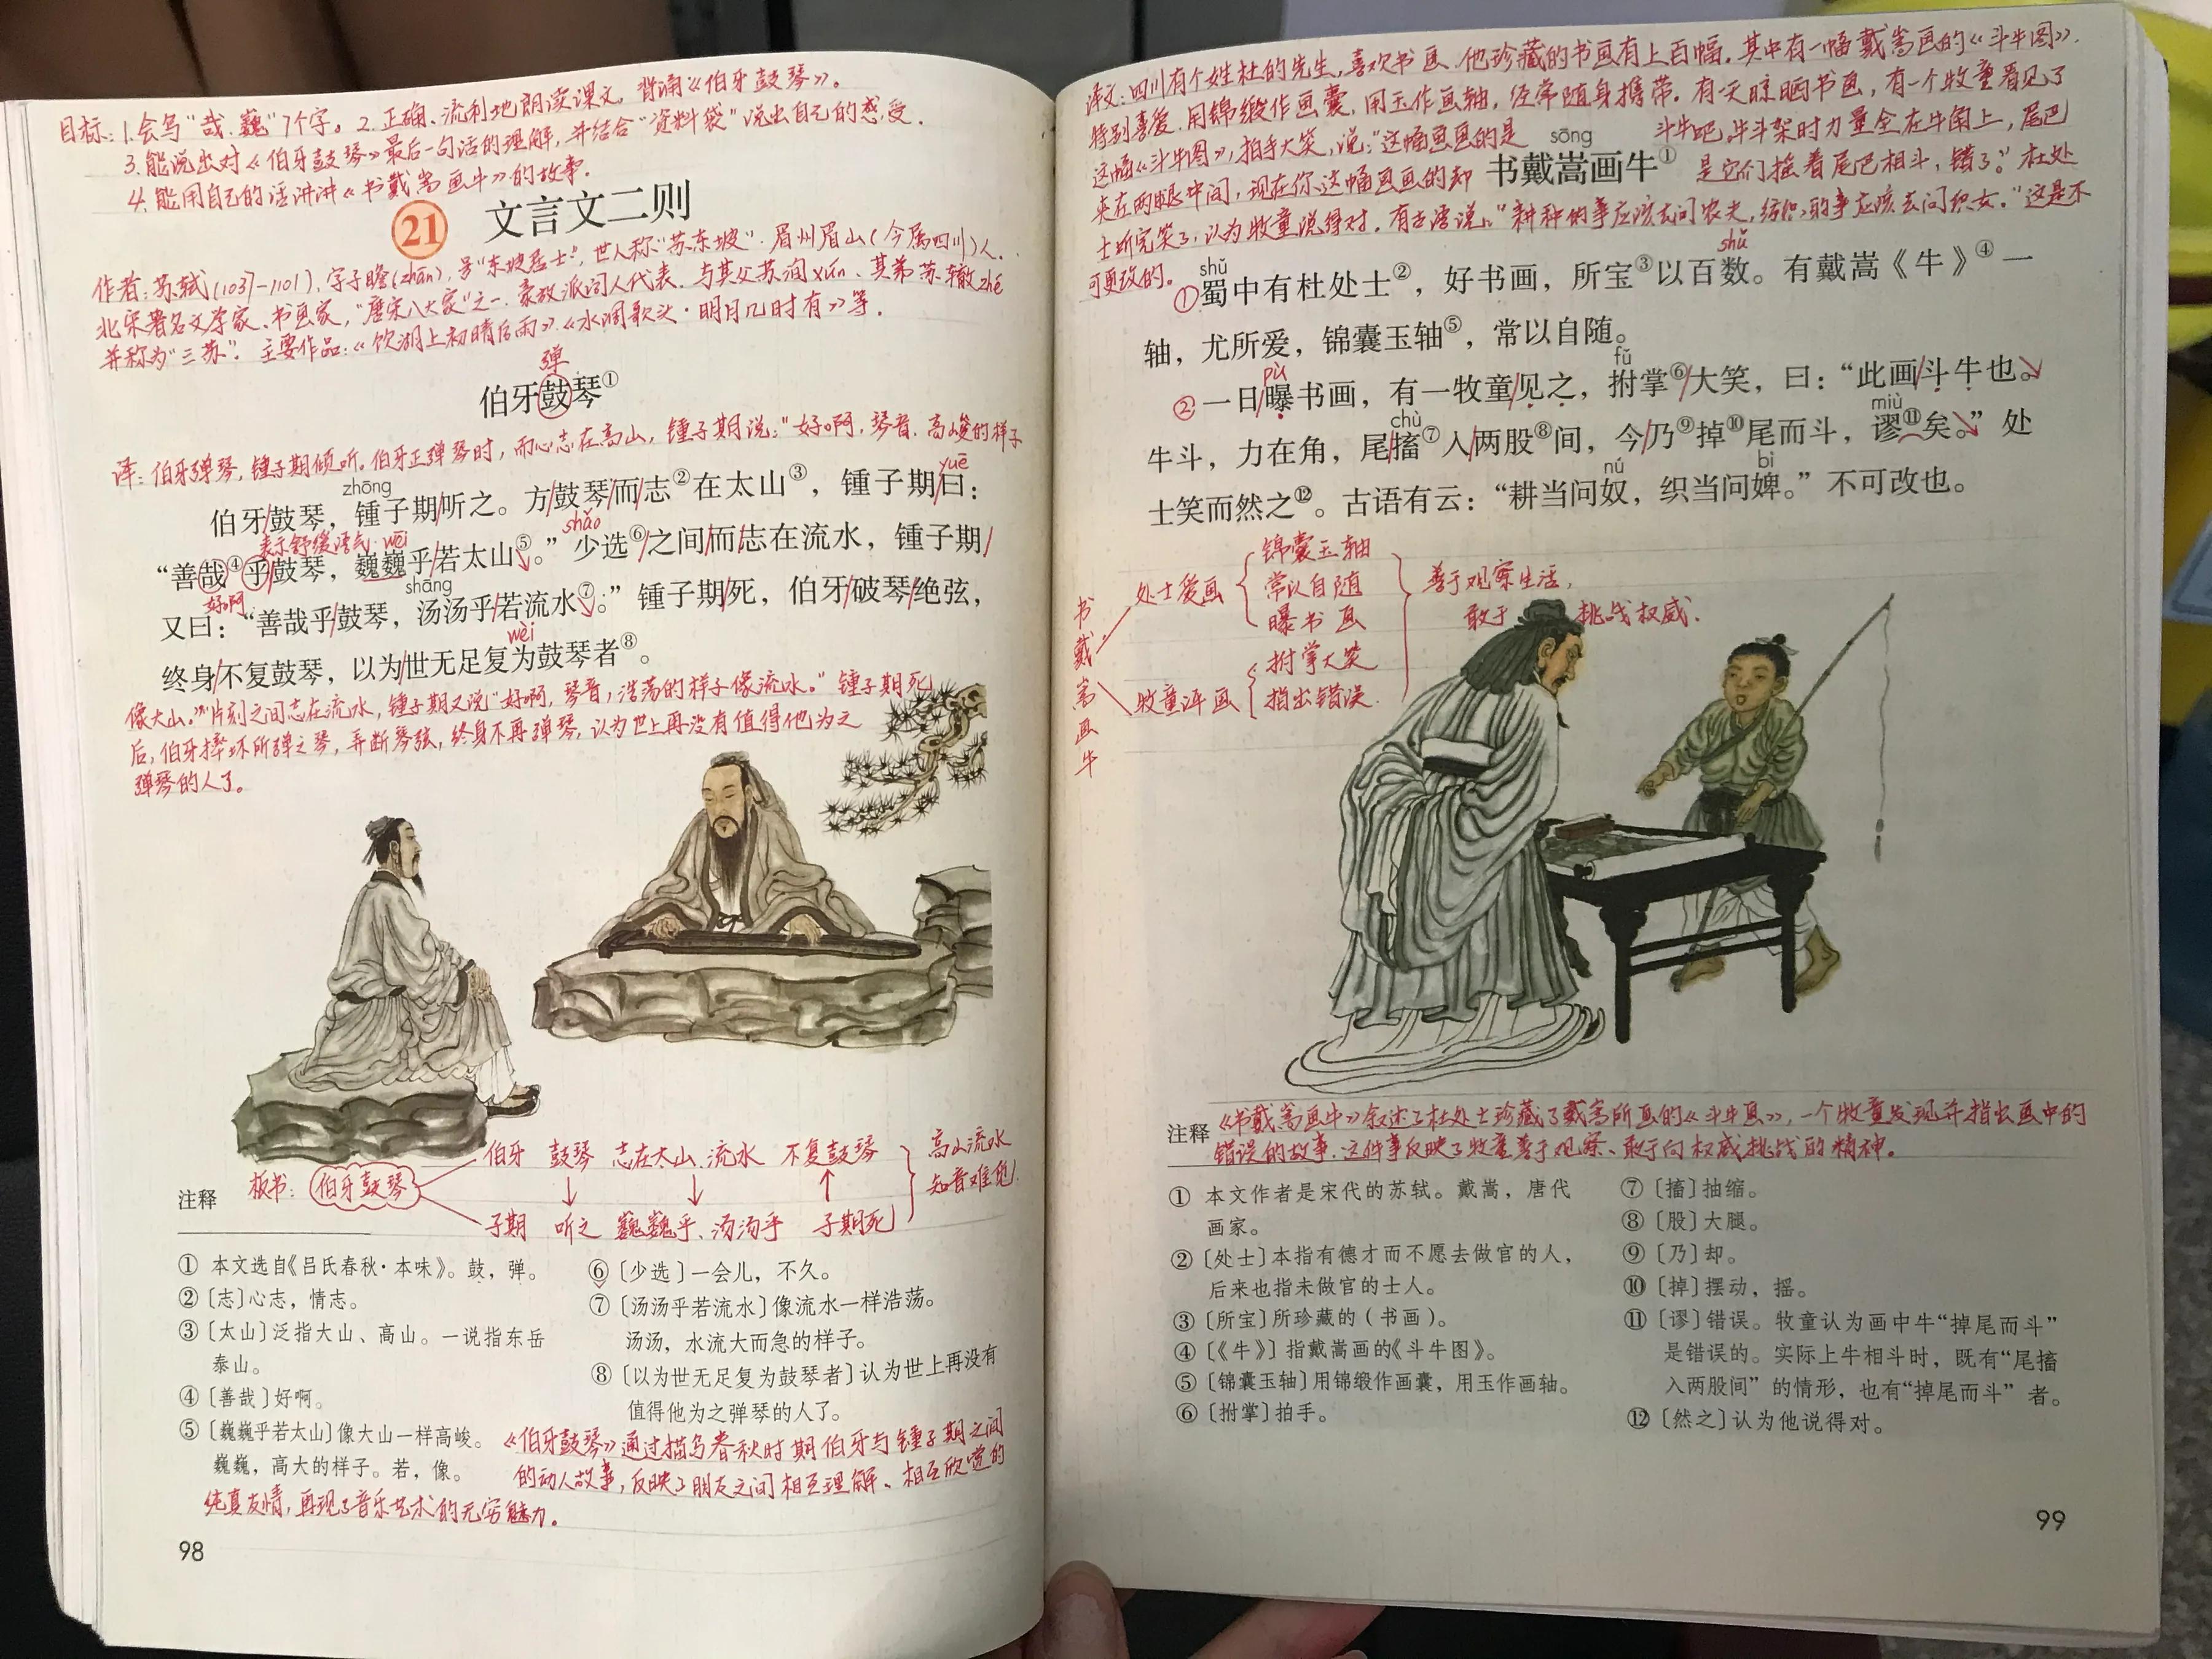 目标：1.会写“哉、巍”7个字。2.正确、流利地朗读课文，背诵《伯牙鼓琴》。
3.能说出对《伯牙鼓琴》最后一句话的理解，并结合“资料袋”说出自己的感受。
4.能用自己的话讲讲《书戴嵩画牛》的故事。
21 文言文二则
作者：苏轼(1037-1101)，字子瞻(zhān)，号“东坡居士”，世人称“苏东坡”。眉州眉山(今属四川)人。
北宋著名文学家、书画家，“唐宋八大家”之一，豪放派词人代表。与其父苏洵xún、其弟苏辙zhé
并称为“三苏”。主要作品：《饮湖上初晴后雨》《水调歌头·明月几时有》等。
弹
伯牙鼓琴①
译：伯牙弹琴，锺子期倾听。伯牙正弹琴时，而心志在高山，锺子期说：“好啊，琴音，高峻的样子
zhōng yuē
伯牙/鼓琴，锺子期/听之。方/鼓琴/而/志②在太山③，锺子期/曰：
表示舒缓语气 wēi shǎo
“善哉④乎/鼓琴，巍巍乎/若太山⑤。”少选⑥/之间/而/志在流水，锺子期/
好啊 shāng
又曰：“善哉乎/鼓琴，汤汤乎/若流水⑦。”锺子期/死，伯牙/破琴/绝弦，
wéi
终身/不复鼓琴，以为/世无足复为鼓琴者⑧。
像大山。”片刻之间志在流水，锺子期又说“好啊，琴音，浩荡的样子像流水。”锺子期死
后，伯牙摔坏所弹之琴，弄断琴弦，终身不再弹琴，认为世上再没有值得他为之
弹琴的人了。
伯牙 鼓琴 志在太山、流水 不复鼓琴
板书：伯牙鼓琴
高山流水
知音难觅
子期 听之 巍巍乎、汤汤乎 子期死
注释
① 本文选自《吕氏春秋·本味》。鼓，弹。
②〔志〕心志，情志。
③〔太山〕泛指大山、高山。一说指东岳
泰山。
④〔善哉〕好啊。
⑤〔巍巍乎若太山〕像大山一样高峻。
巍巍，高大的样子。若，像。
⑥〔少选〕一会儿，不久。
⑦〔汤汤乎若流水〕像流水一样浩荡。
汤汤，水流大而急的样子。
⑧〔以为世无足复为鼓琴者〕认为世上再没有
值得他为之弹琴的人了。
《伯牙鼓琴》通过描写春秋时期伯牙与锺子期之间
的动人故事，反映了朋友之间相互理解、相互欣赏的
纯真友情，再现了音乐艺术的无穷魅力。
98
译文：四川有个姓杜的先生，喜欢书画，他珍藏的书画有上百幅，其中有一幅戴嵩画的《斗牛图》，
特别喜爱，用锦缎作画囊，用玉作画轴，经常随身携带。有一天晾晒书画，有一个牧童看见了
这幅《斗牛图》，拍手大笑，说：“这幅画画的是斗牛吧，牛斗架时力量全在牛角上，尾巴
夹在两腿中间，现在你这幅画画的却是它们摇着尾巴相斗，错了。”杜处
士听完笑了，认为牧童说得对。有古语说：“耕种的事应该去问农夫，纺织的事应该去问织女。”这是不
可更改的。
sōng
书戴嵩画牛①
shǔ shǔ
①蜀中有杜处士②，好书画，所宝③以百数。有戴嵩《牛》④一
轴，尤所爱，锦囊玉轴⑤，常以自随。
pù fǔ
②一日/曝书画，有一牧童/见之，拊掌⑥/大笑，曰：“此画/斗牛也。
chù miù
牛斗，力在角，尾/搐⑦入/两股⑧间，今/乃⑨掉⑩尾而斗，谬⑪矣。”处
nú bì
士笑而然之⑫。古语有云：“耕当问奴，织当问婢。”不可改也。
书戴嵩画牛
处士爱画
锦囊玉轴
常以自随
曝书画
牧童评画
拊掌大笑
指出错误
善于观察生活，
敢于挑战权威。
《书戴嵩画牛》叙述了杜处士珍藏了戴嵩所画的《斗牛画》，一个牧童发现并指出画中的
错误的故事，这件事反映了牧童善于观察、敢于向权威挑战的精神。
注释
① 本文作者是宋代的苏轼。戴嵩，唐代
画家。
②〔处士〕本指有德才而不愿去做官的人，
后来也指未做官的士人。
③〔所宝〕所珍藏的（书画）。
④〔《牛》〕指戴嵩画的《斗牛图》。
⑤〔锦囊玉轴〕用锦缎作画囊，用玉作画轴。
⑥〔拊掌〕拍手。
⑦〔搐〕抽缩。
⑧〔股〕大腿。
⑨〔乃〕却。
⑩〔掉〕摆动，摇。
⑪〔谬〕错误。牧童认为画中牛“掉尾而斗”
是错误的。实际上牛相斗时，既有“尾搐
入两股间”的情形，也有“掉尾而斗”者。
⑫〔然之〕认为他说得对。
99